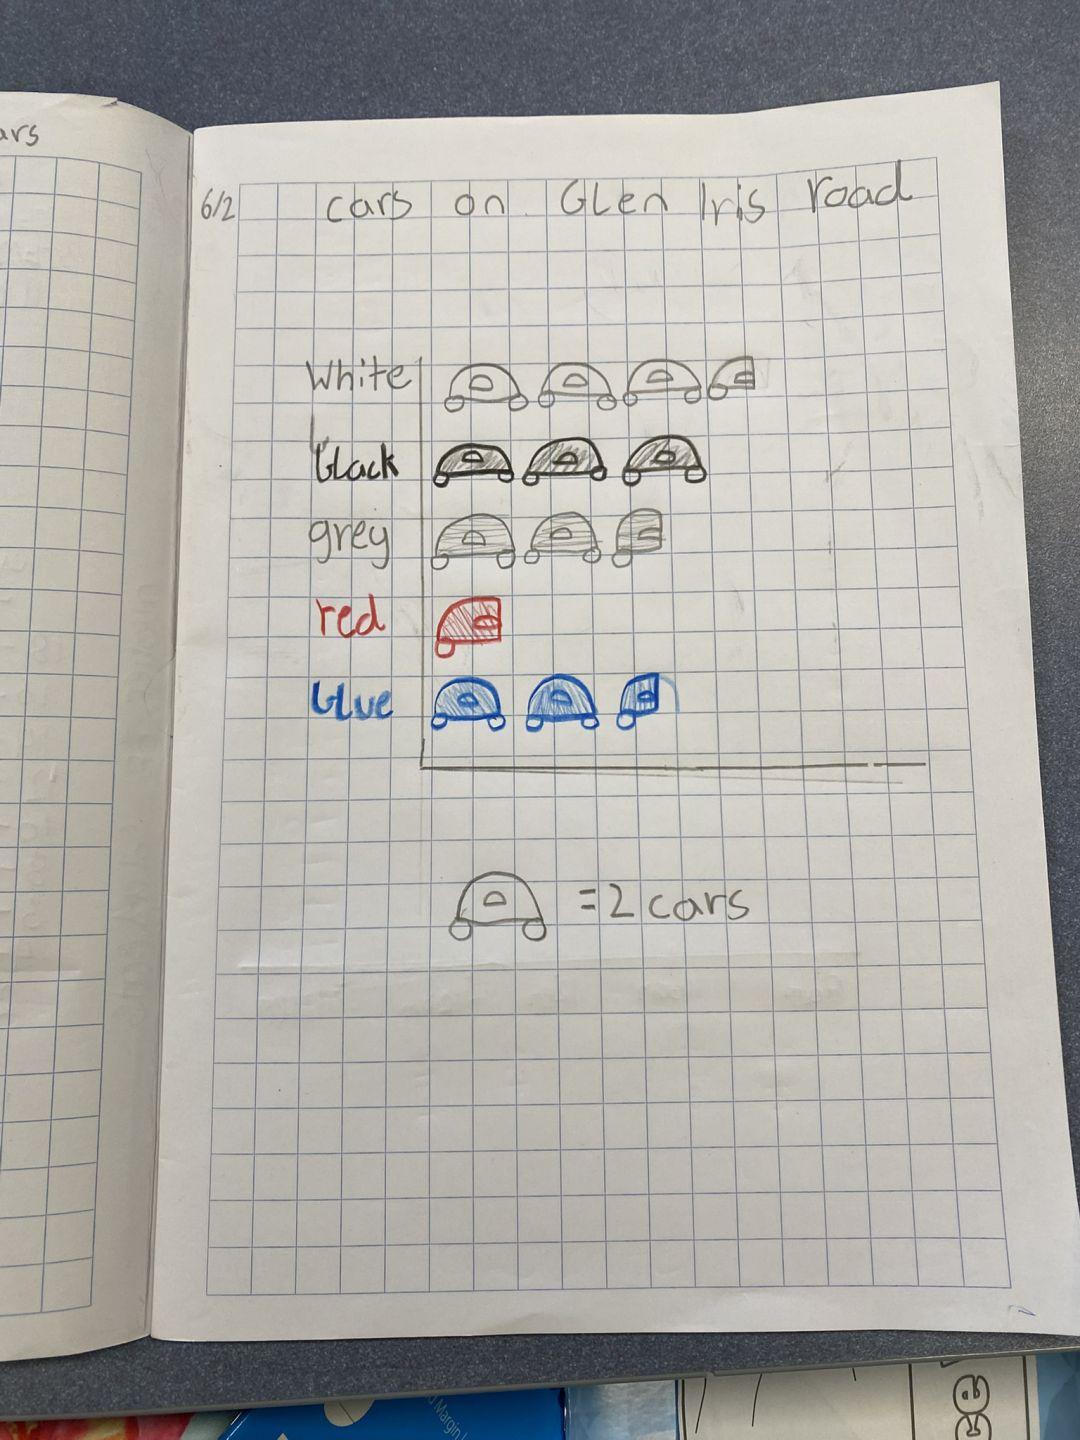 ars
6/2 cars on GLen Iris road
White
black
grey
red
blue
= 2 cars
Margin